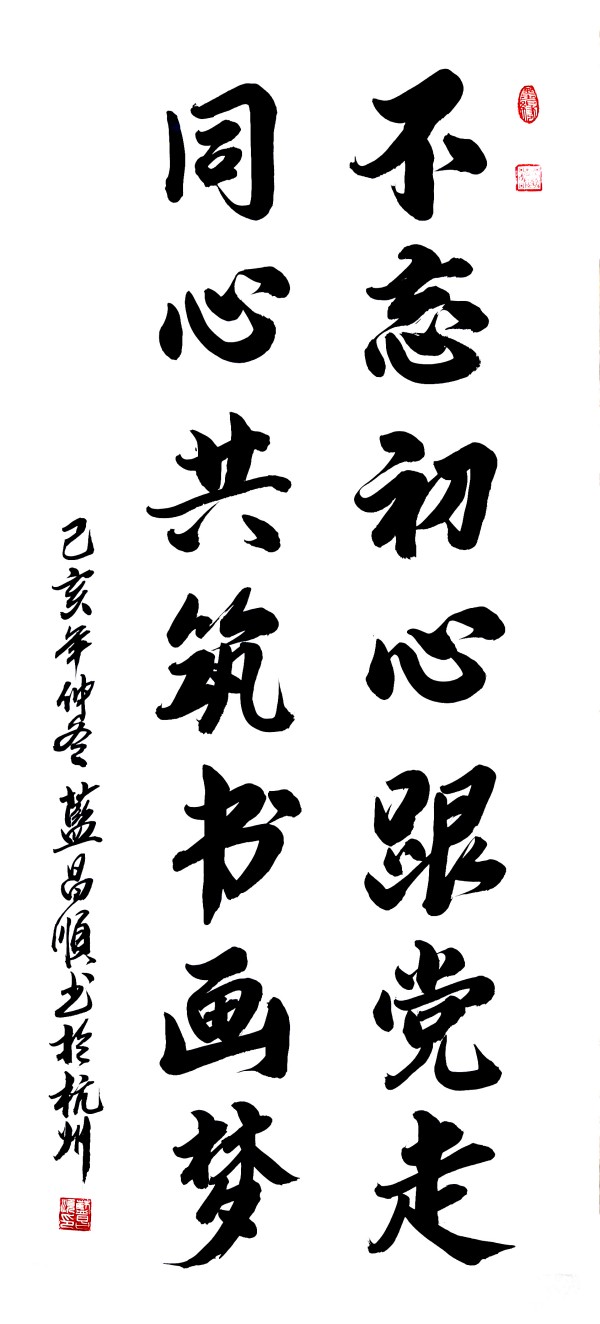 不忘初心跟党走
同心共筑书画梦
己亥年仲冬 藍昌順书於杭州